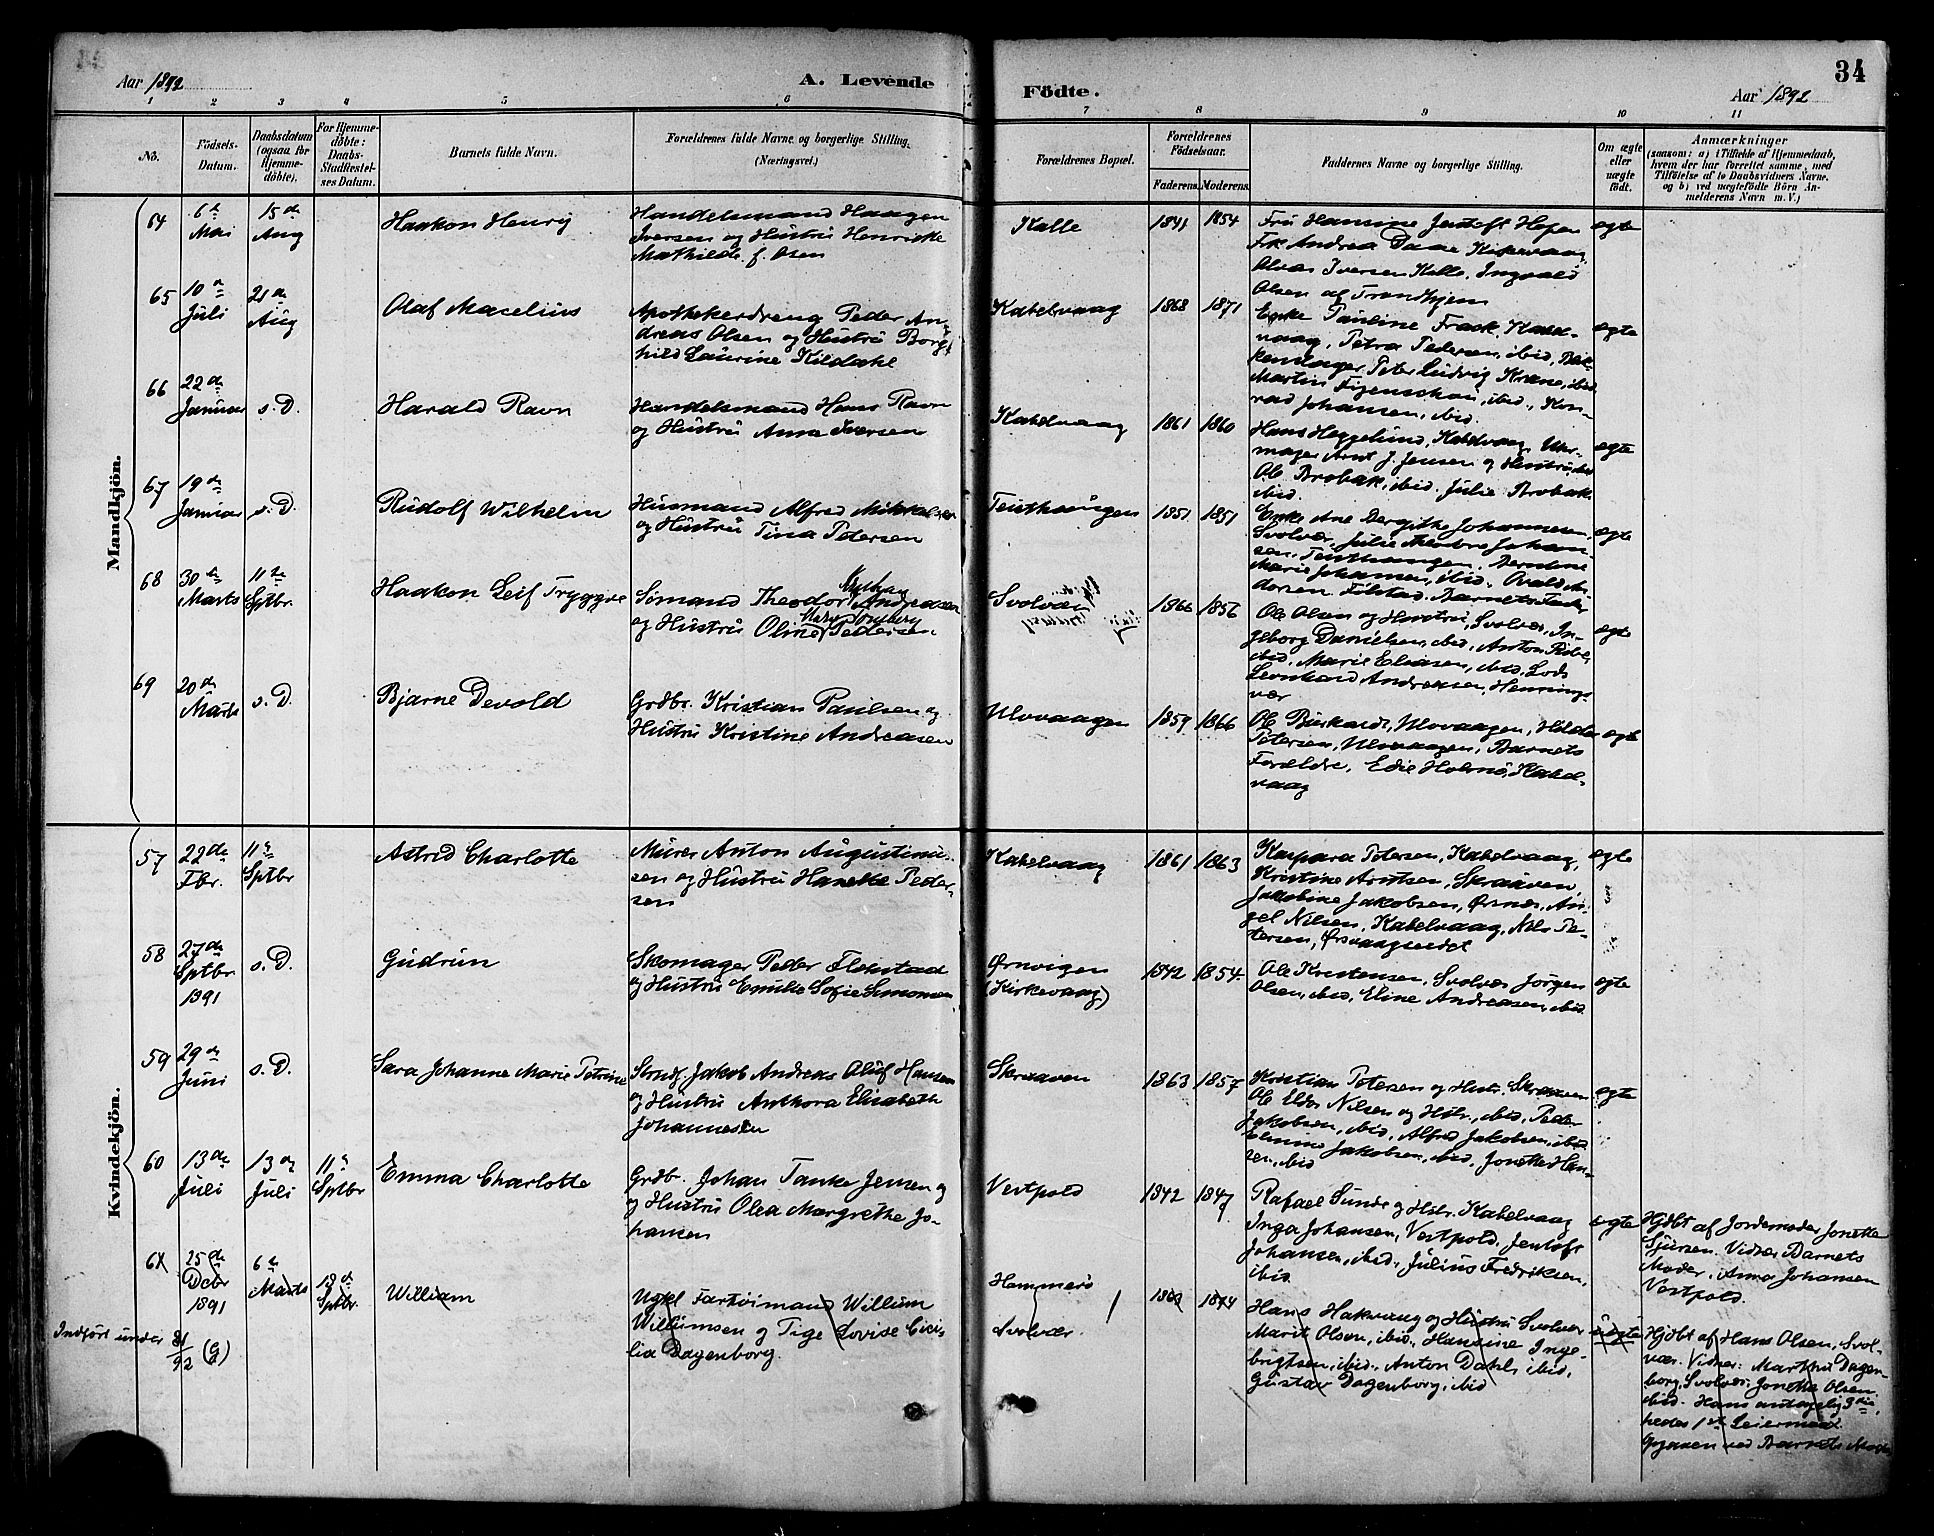 Aar 1892
A. Levende
Födte.
Aar 1892
34
1 2 3 4 5 6 7 8 9 10 11
No.
Födsels-
Datum.
Daabsdatum
(ogsaa for
Hjemme-
döbte).
For Hjemme-
döbte:
Daabs-
Stadfæstel-
ses Datum.
Barnets fulde Navn.
Forældrenes fulde Navne og borgerlige Stilling.
(Næringsvei.)
Forældrenes Bopæl.
Forældrenes
Födselsaar.
Faderens.
Moderens.
Faddernes Navne og borgerlige Stilling.
Om ægte
eller
uægte
födt.
Anmærkninger
(saasom: a) i Tilfælde af Hjemmedaab,
hvem der har forrettet samme, med
Tilföielse af to Daabsvidners Navne,
og b) ved uægtefödte Börn An-
melderens Navn m. V.)
Mandkjön.
64
6te
Mai
15de
Aug
Haakon Henry
Handelsmand Haagen
Iversen og Hustru Henrikke
Mathilde f. Olsen
Kalle
1841
1854
Fru Hansine Jentoft Hopen
Frk Andrea Daae Kirkevaag
Olvar Iversen Kalle, Ingvald
Olsen af Trondhjem
ægte
65
10de
Juli
21de
Aug
Olaf Macelius
Apothekerdreng Peder An-
dreas Olsen og Hustru Borg-
hild Laurine Kildahl
Kabelvaag
1868
1871
Enke Pauline Frask, Kabel-
vaag, Petra Pedersen, ibid,
Peter Ludvig Krane, ibid
Martin Figenschou, ibid., Kon-
rad Johansen, ibid.
ægte
66
22de
Januar
s. D.
Harald Ravn
Handelsmand Hans Ravn
og Hustru Anna Iversen
Kabelvaag
1861
1860
Hans Heggelund, Kabelvaag, Uhr-
mager Arnt J. Jensen og Hustru ibid
Ole Brobak, ibid. Julie Brobak
ibid.
ægte
67
19de
Januar
s. D.
Rudolf Wilhelm
Husmand Alfred Mikalsen
og Hustru Tina Petersen
Teisthaugen
1851
1851
Enke Ane Bergithe Johannesen,
Svolvær, Julie Johan-
sen, Teisthaugen, Berndine
Marie Johansen, ibid.
Barnets Fader
ægte
68
30te
Marts
11te
Sptbr.
Haakon Leif Tryggve
Sömand Theodor Andreasen
og Hustru Oline Pedersen.
Svolvær
1866
1856
Ole Olsen og Hustru, Svolvær, In-
geborg Danielsen, ibid, Anton
ibid, Marie Eliasen, ibid, Lods
Leonhard Andreasen, Hennings-
vær
ægte
69
20de
Marts
s. D.
Bjarne Devold
Grdbr. Kristian Paulsen og
Hustru Kristine Andreasen
Ulvaagen
1859
1866
Ole Burkardt, Ulvaagen, Hilda
Petersen, Ulvaagen, Barnets
Forældre, Edie Holmö, Kabel-
vaag
ægte
Kvindekjön.
57
22de
Fbr.
11te
Sptbr
Astrid Charlotte
Murer Anton Augustinus-
sen og Hustru Hanekke Peder-
sen
Kabelvaag
1861
1863
Kaspara Petersen, Kabelvaag,
Kristine Arntsen, Skraaven,
Jakobine Jakobsen, Örsnes, An-
gel Nilsen, Kabelvaag, Nils Pe-
tersen, Örsvaagseidet
ægte
58
27de
Sptbr.
1891
s. D.
Gudrun
Skomager Peder Flakstad
og Hustru Emilie Sofie Simonsen
Ørnvigen
(Kirkevaag)
1842
1854
Ole Kristensen, Svolvær Jörgen
Olsen, ibid, Eline Andreasen, ibid.
ægte
59
29de
Juni
s. D.
Sara Johanne Marie Petrine
Strndf. Jakob Andreas Oluf Hansen
og Hustru Anthora Elisabeth
Johannesen
Skraaven
1863
1857
Kristian Petersen og Hust. Skraaven
Ole Eldor Nilsen og Hstr., ibid, Peder
Jakobsen, ibid, Alfred Jakobsen, ibid
Elmine Jakobsen, ibid, Jonette Han-
sen, ibid
ægte
60
13de
Juli
13de
Juli
11te
Sptbr
Emma Charlotte
Grdb. Johan Tanke Jensen og
og Hustru Olea Margrethe Jo-
hansen
Vestpold
1842
1847
Rafael Sunde og Hstr. Kabelvaag
Inga Johansen, Vestpold, Jentoft
Johansen, ibid., Julius Fredriksen,
ibid.
ægte
Hjdbt af Jordemoder Jonette
Sjursen. Vidner Barnets
Moder, Anna Johansen
Vestpold.
61
25de
Dcbr
1891
6te
Marts
13de
Sptbr.
William
Ugkl Fartöimand Willum
Willumsen og Pige Lovise Ceci-
lia Dagenborg.
Hammerö
Svolvær.
1869
1874
Hans Hakvaag og Hustru Svolvær
Marit Olsen, ibid., Hansine Inge-
brigtsen, ibid., Anton Dahl, ibid,
Gustav Dagenborg, ibid
uægte
Hjdbt af Hans Olsen, Svol-
vær. Vidner: Marthe Dagen-
borg, Svolvær, Jonetha Olsen
ibid. Hans
hendes 1ste Leiermaal.
ved Barnets Moder
Indfört under 31/92 (G)